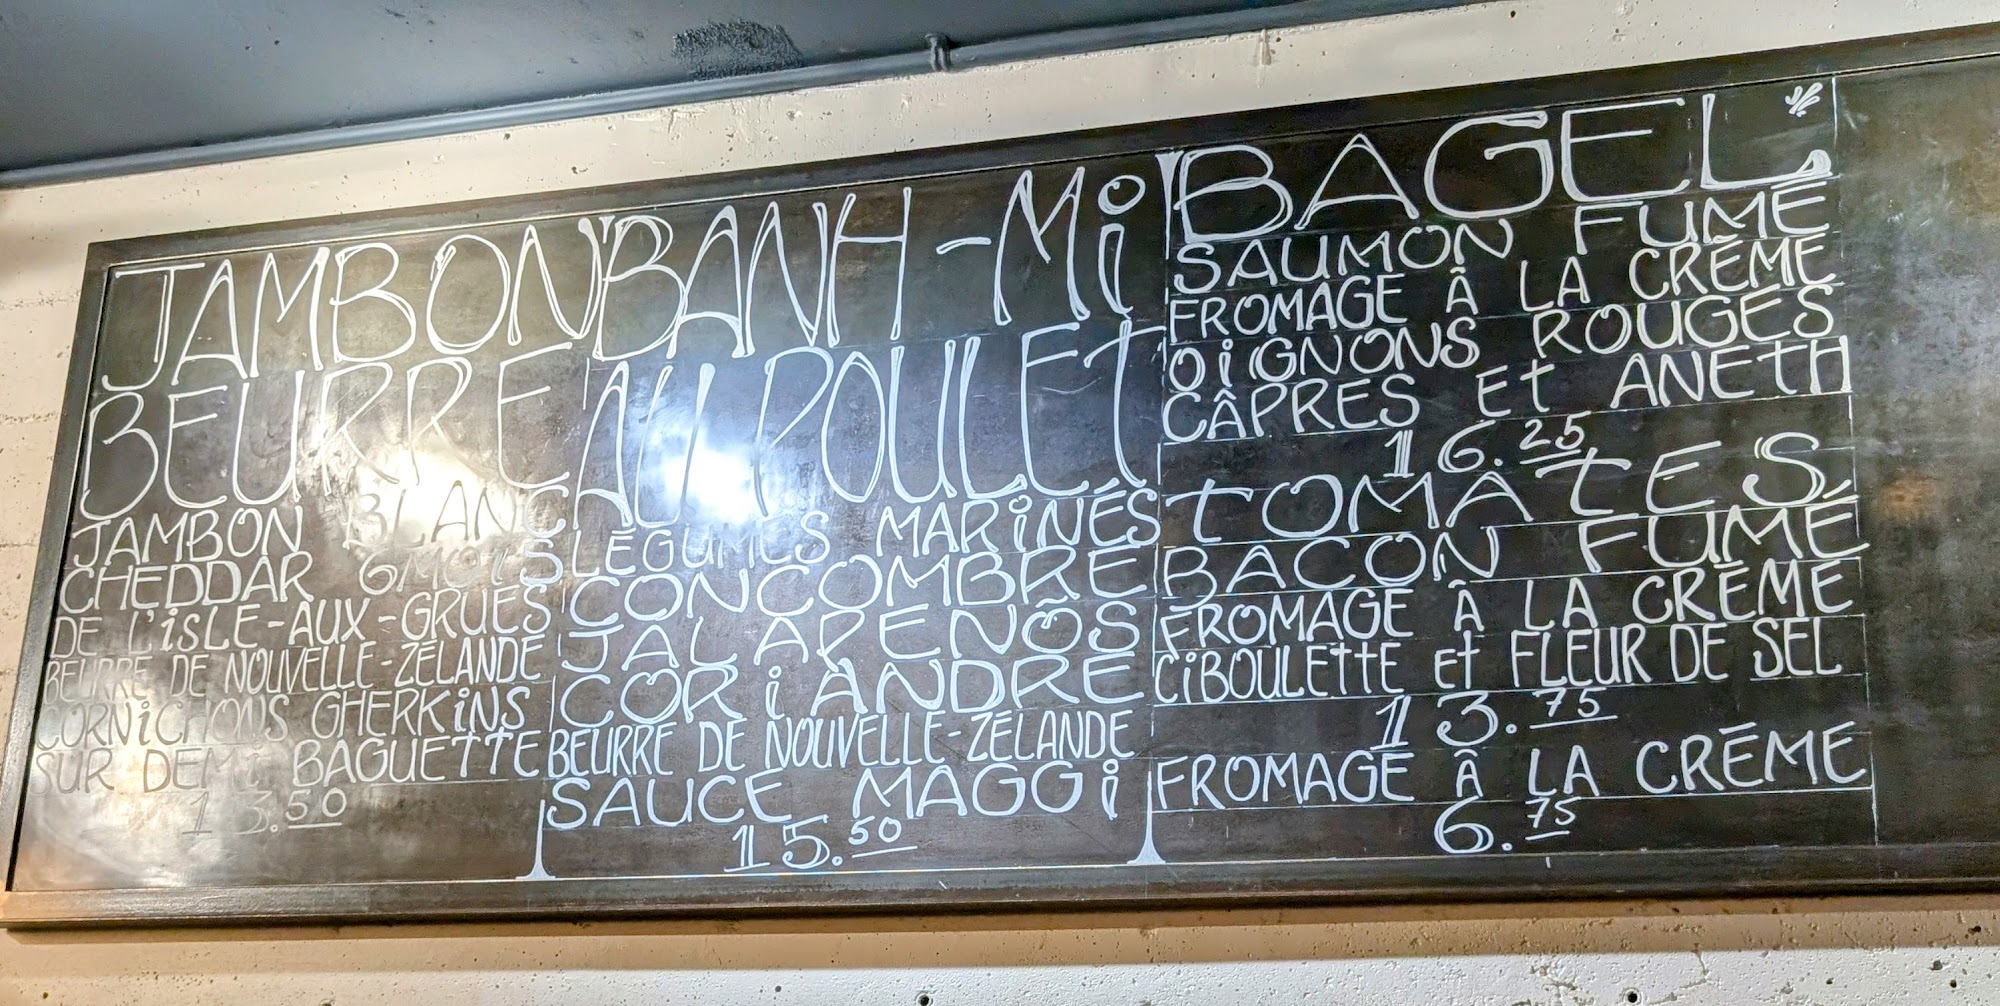 JAMBON
BEURRE
JAMBON BLANC
CHEDDAR 6 MOIS
DE L'iSLE-AUX-GRUES
BEURRE DE NOUVELLE-ZÉLANDE
CORNiCHONS GHERKiNS
SUR DEMi BAGUETTE
13.50
BANH-Mi
AU POULEt
LÉGUMES MARiNÉS
CONCOMBRE
JALAPENÕS
CORiANDRE
BEURRE DE NOUVELLE-ZÉLANDE
SAUCE MAGGi
15.50
BAGEL
SAUMON FUMÉ
FROMAGE Â LA CRÈME
OiGNONS ROUGES
CÂPRES Et ANEtH
16.25
tOMATES
BACON FUMÉ
FROMAGE Â LA CRÈME
CiBOULEttE Et FLEUR DE SEL
13.75
FROMAGE Â LA CRÈME
6.75